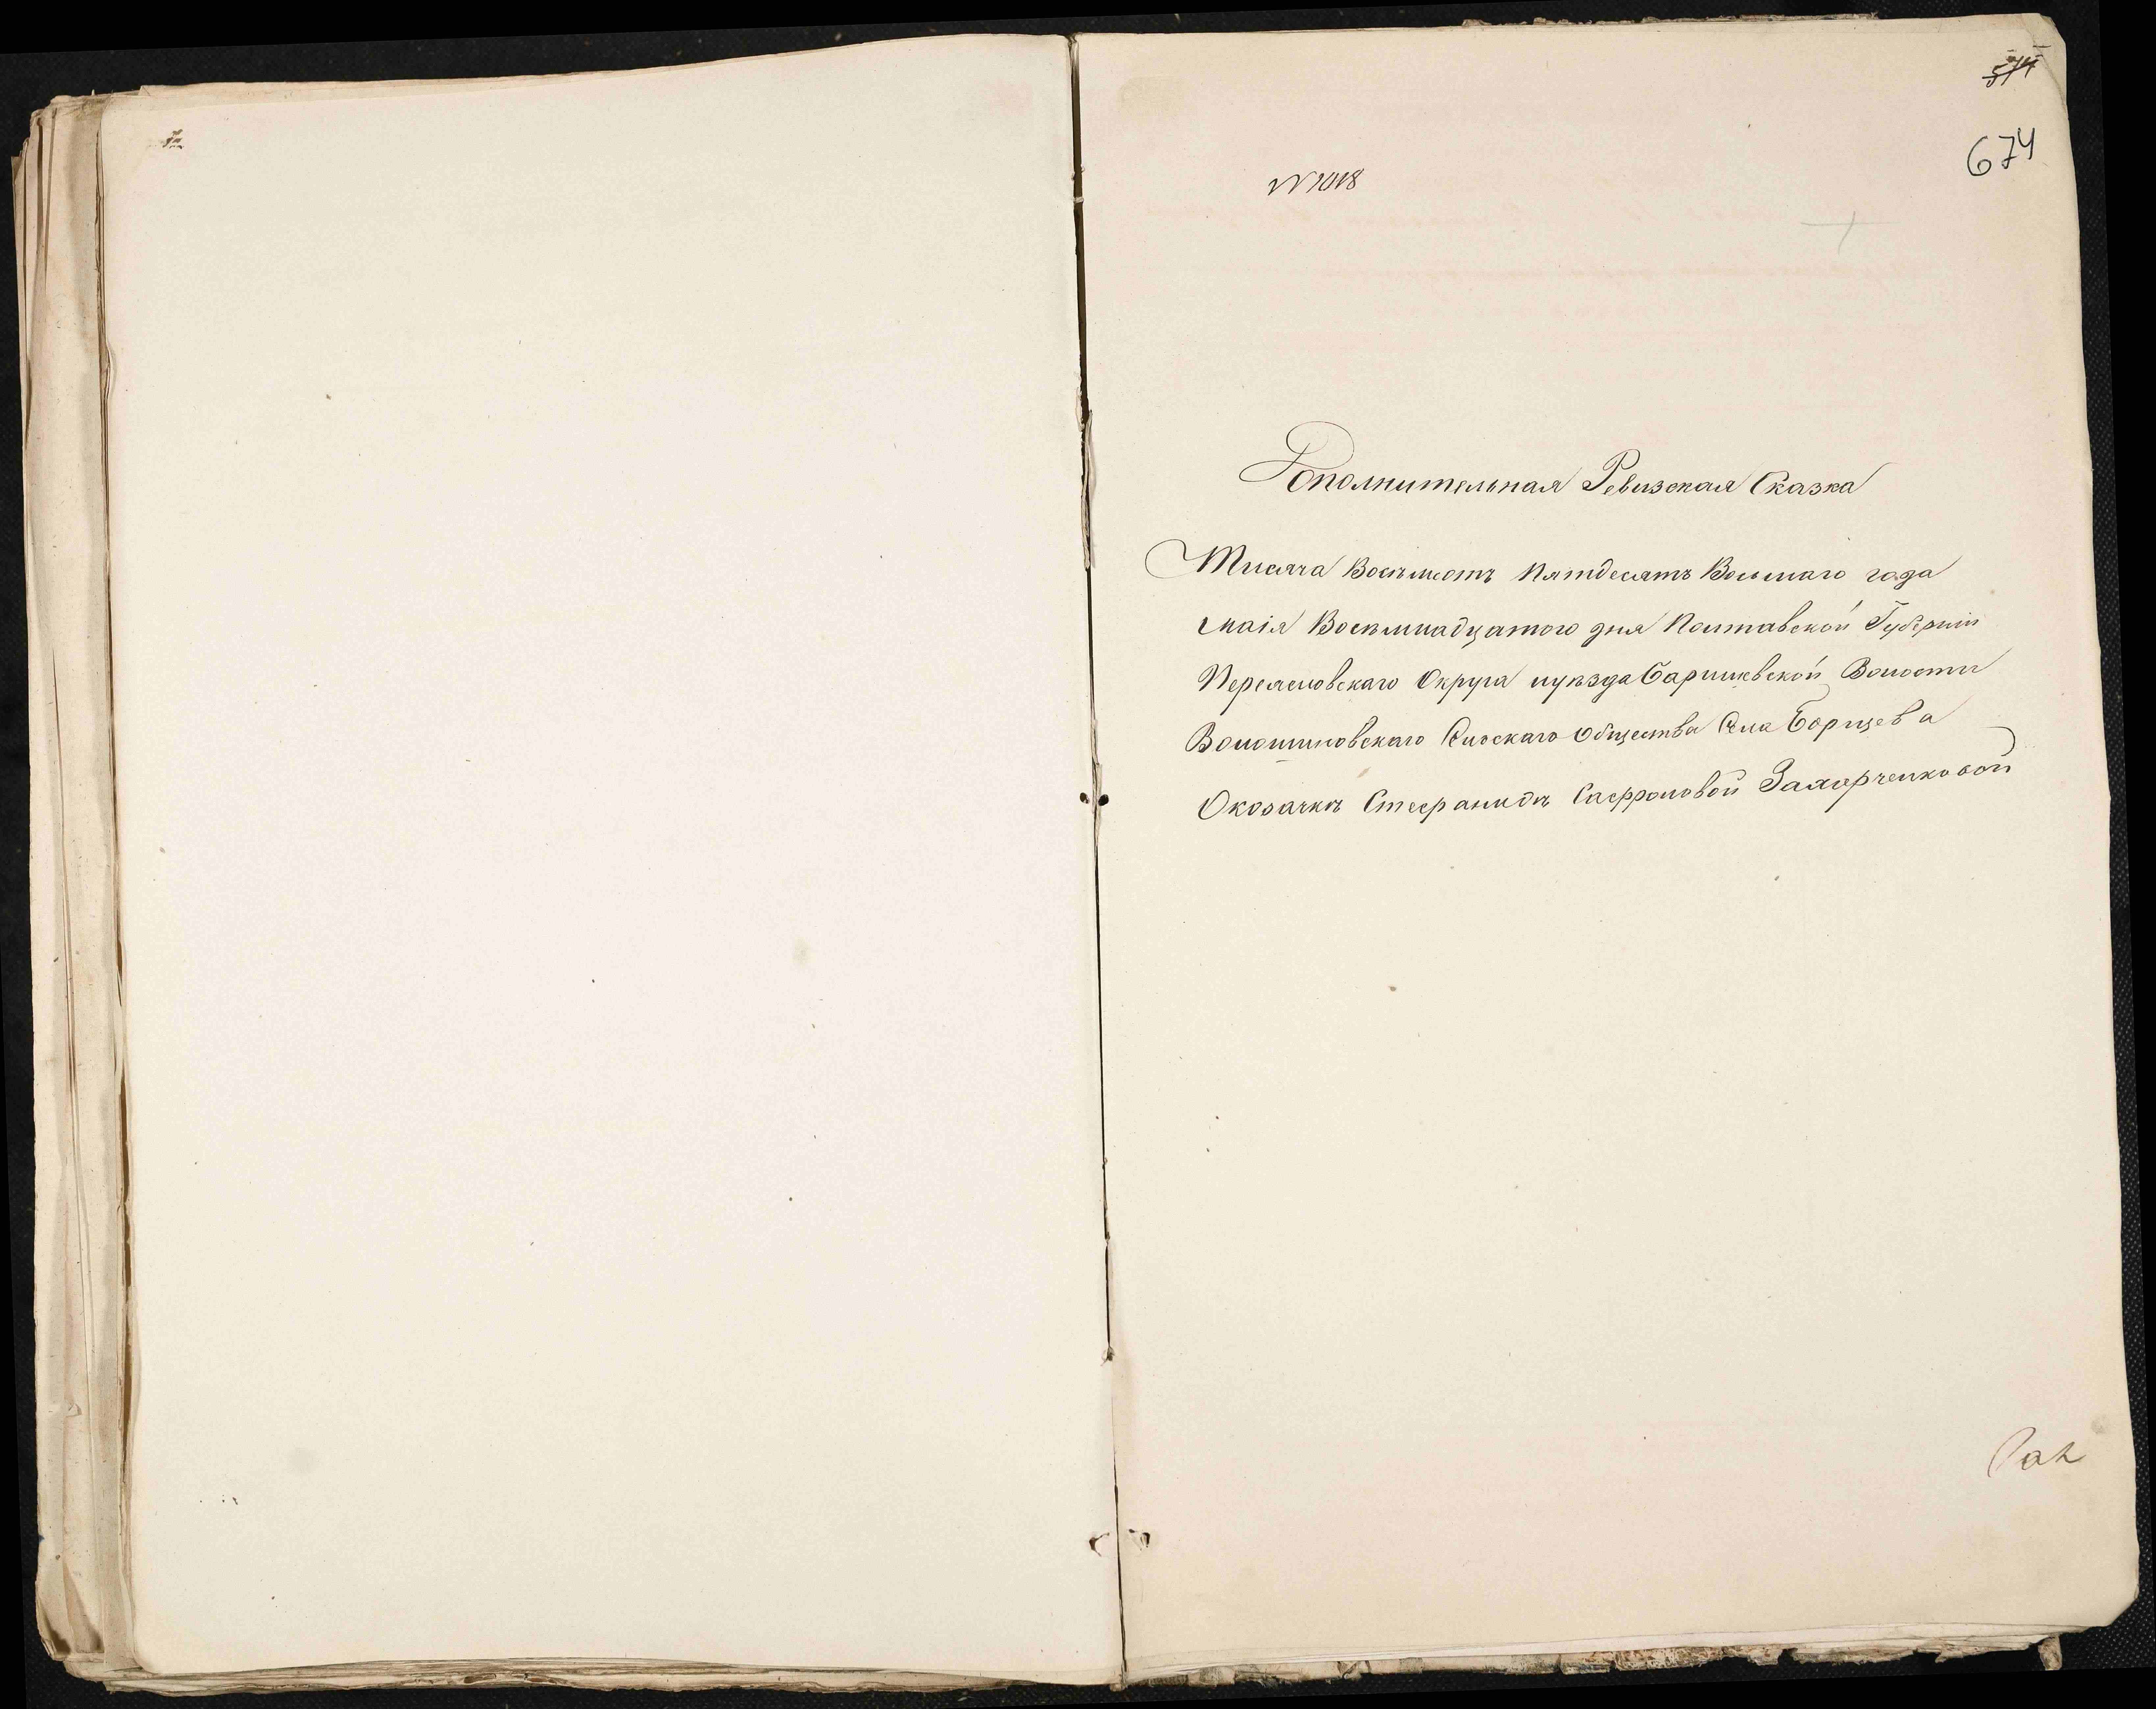 674
№ 1018
Дополнительная Ревизская Сказка
Тисяча Восемьсотъ Пятдесятъ Восьмаго года
маія Восемьнадцатого дня Полтавской Губерніи
Переясловскаго Округа иуѣзда Баришевской Волости
Волошиновскаго Сельскаго Общества Села Борщева
Околачкѣ Стефанидѣ Сафроновой Захарченковой